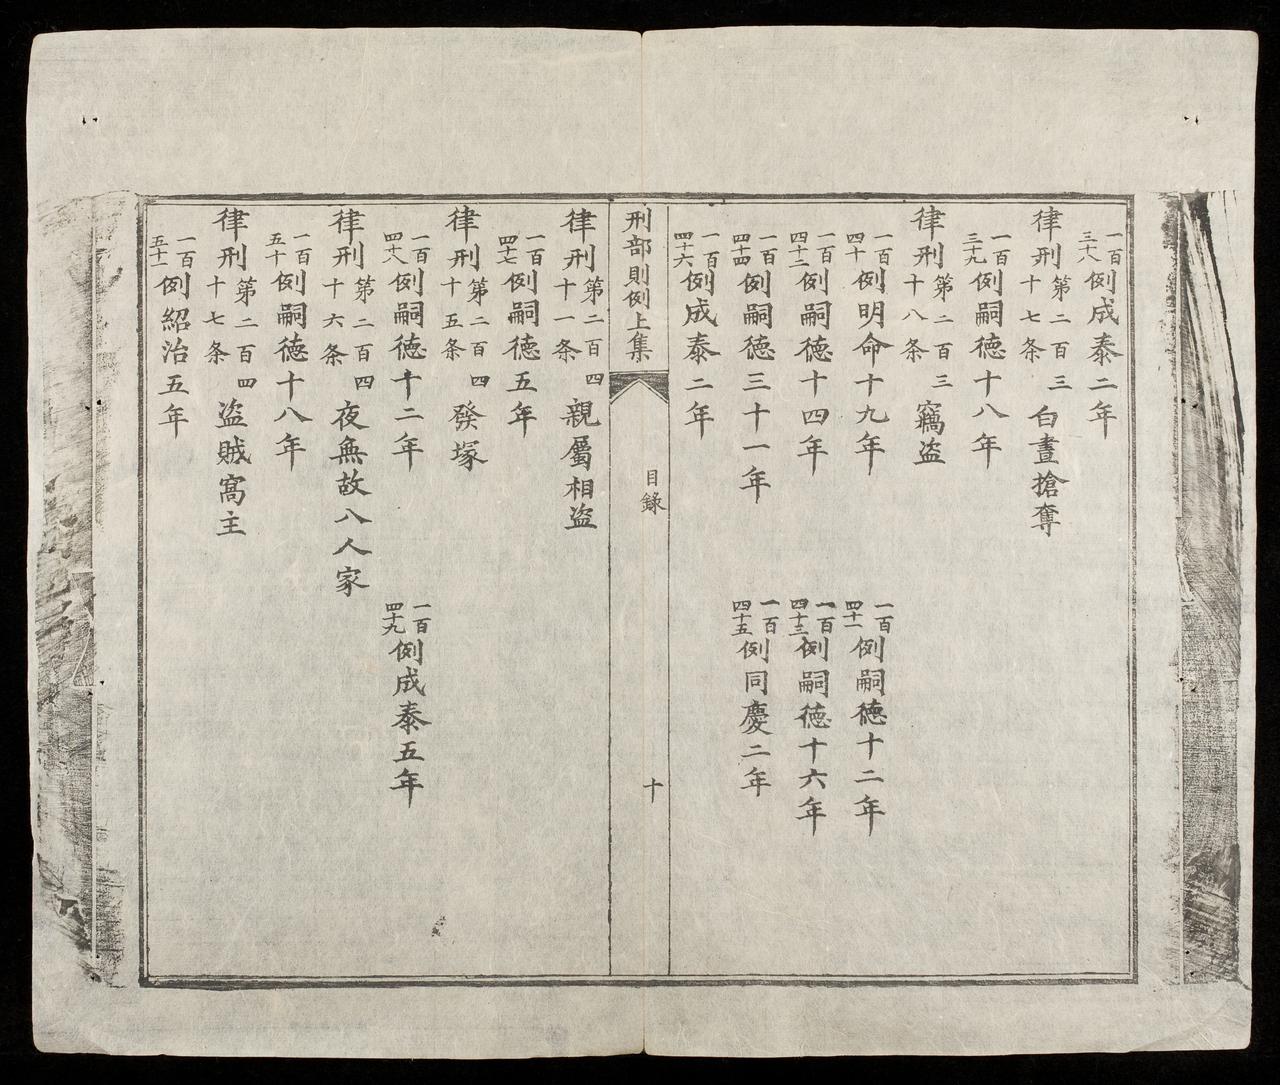 一百三十八例成泰二年
律刑第二百三十七条白晝搶奪
一百三十九例嗣徳十八年
律刑第二百三十八条竊盗
一百四十例明命十九年 一百四十一例嗣徳十二年
一百四十二例嗣徳十四年 一百四十三例嗣徳十六年
一百四十四例嗣徳三十一年 一百四十五例同慶二年
一百四十六例成泰二年
刑部則例上集 目錄 十
律刑第二百四十一条親屬相盗
一百四十七例嗣徳五年
律刑第二百四十五条發塚
一百四十八例嗣徳十二年 一百四十九例成泰五年
律刑第二百四十六条夜無故入人家
一百五十例嗣徳十八年
律刑第二百四十七条盗賊窩主
一百五十一例紹治五年